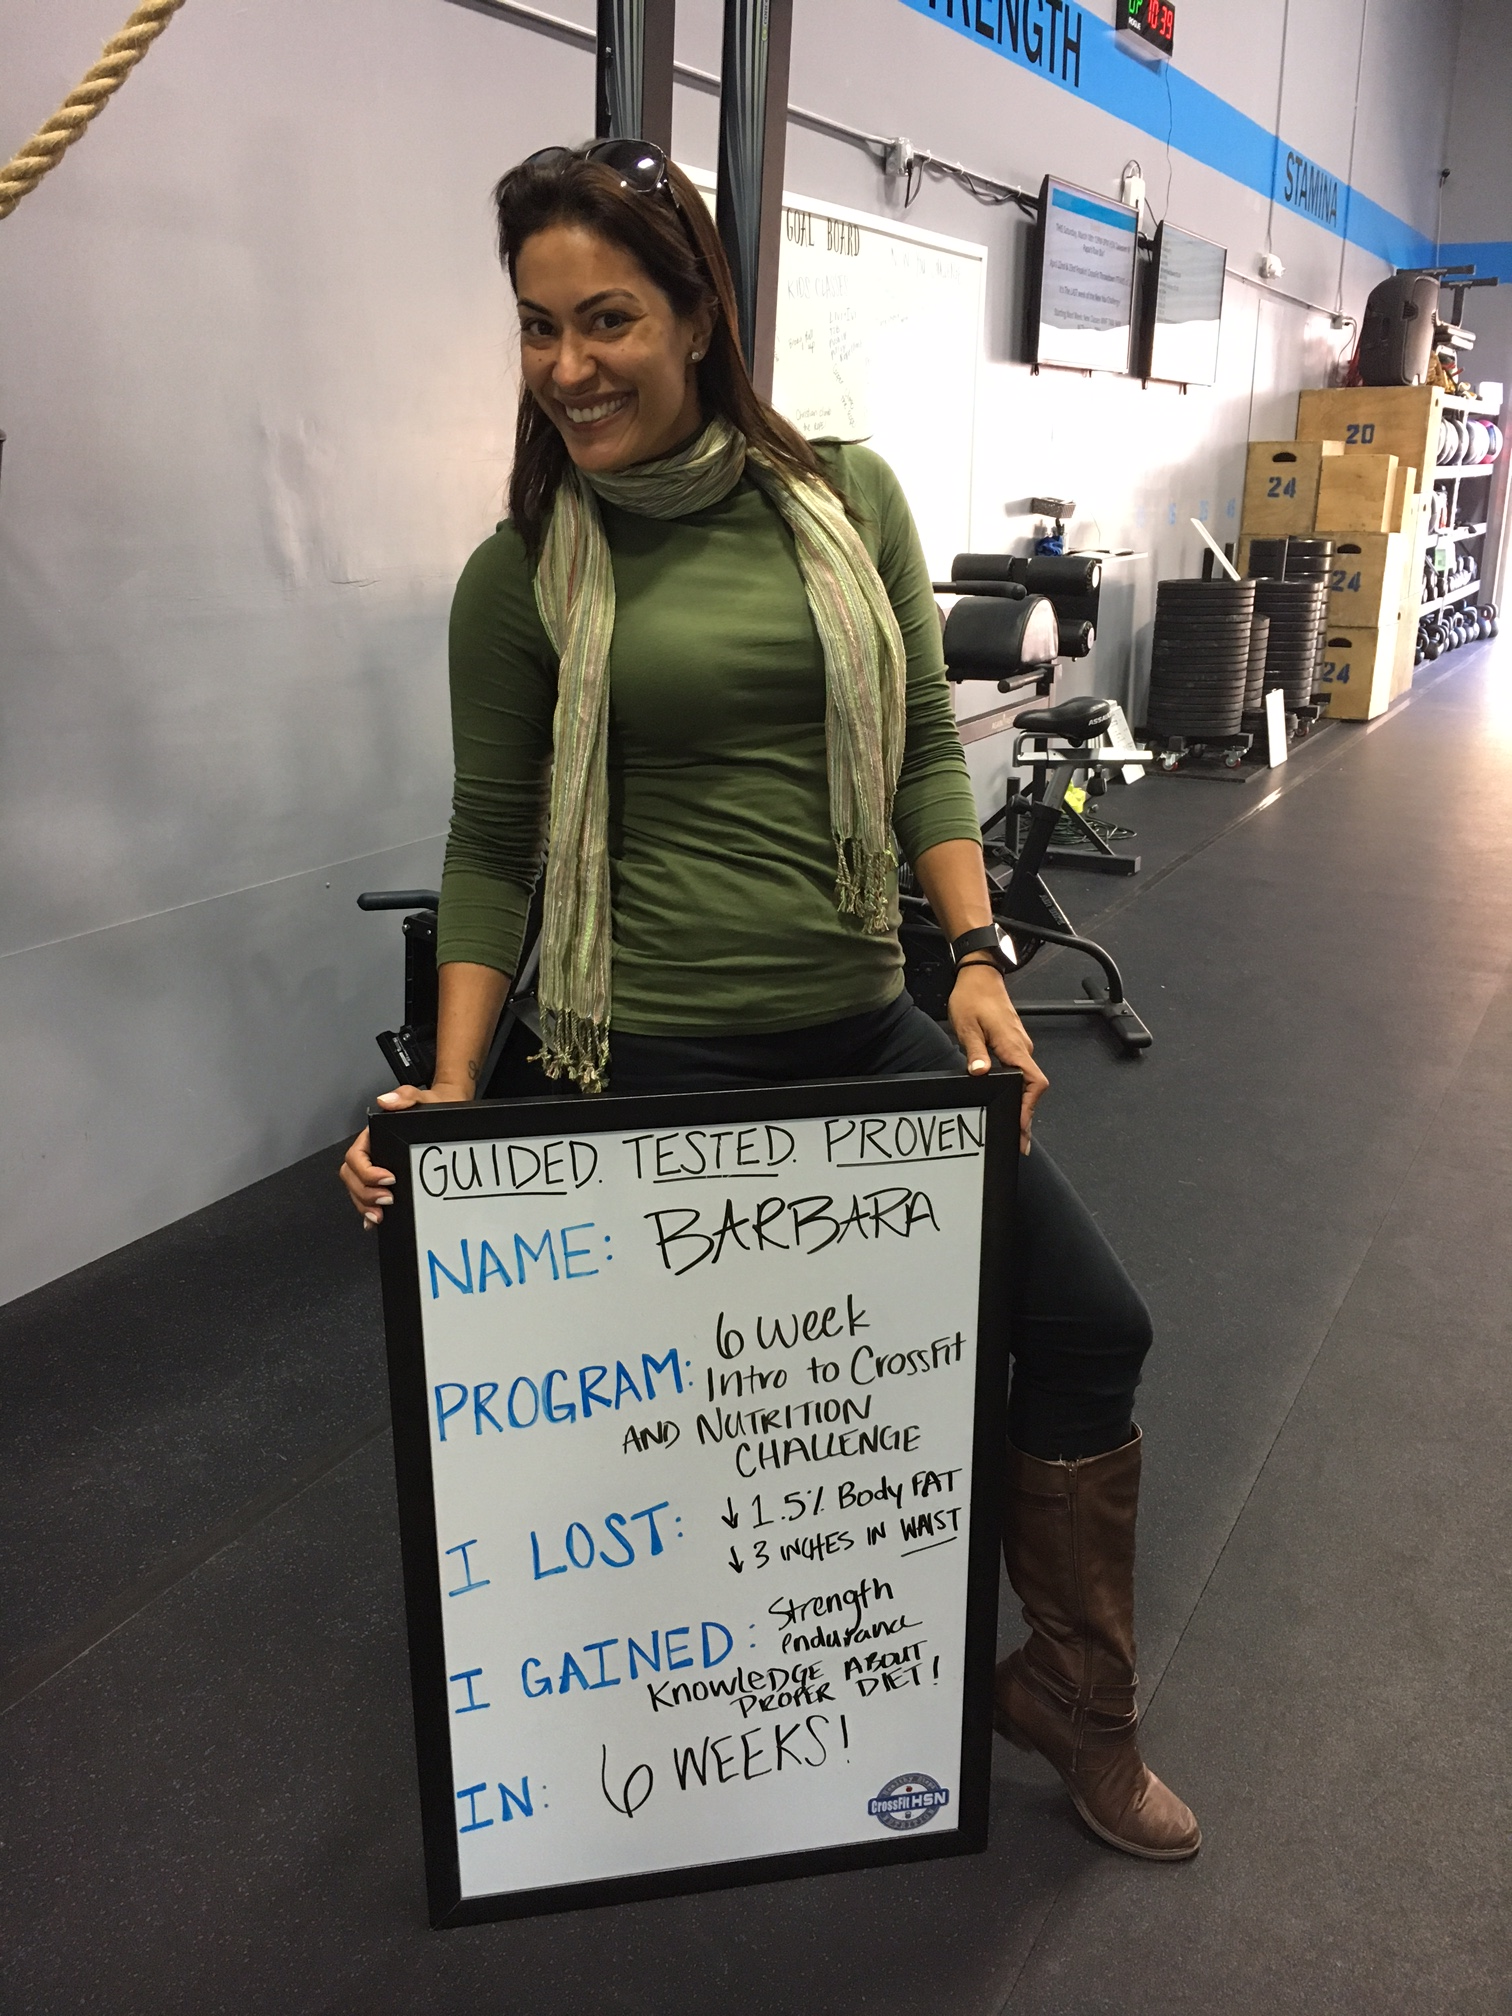 STRENGTH
UP 10:39
STAMINA
GOAL BOARD
KIDS CLASSES
20
24
24
24
GUIDED. TESTED. PROVEN
NAME: BARBARA
PROGRAM: 6 week
Intro to CrossFit
AND NUTRITION
CHALLENGE
I LOST: ↓ 1.5% Body FAT
↓ 3 INCHES IN WAIST
I GAINED: Strength
endurance
Knowledge ABOUT
PROPER DIET!
IN: 6 WEEKS!
CrossFit HSN